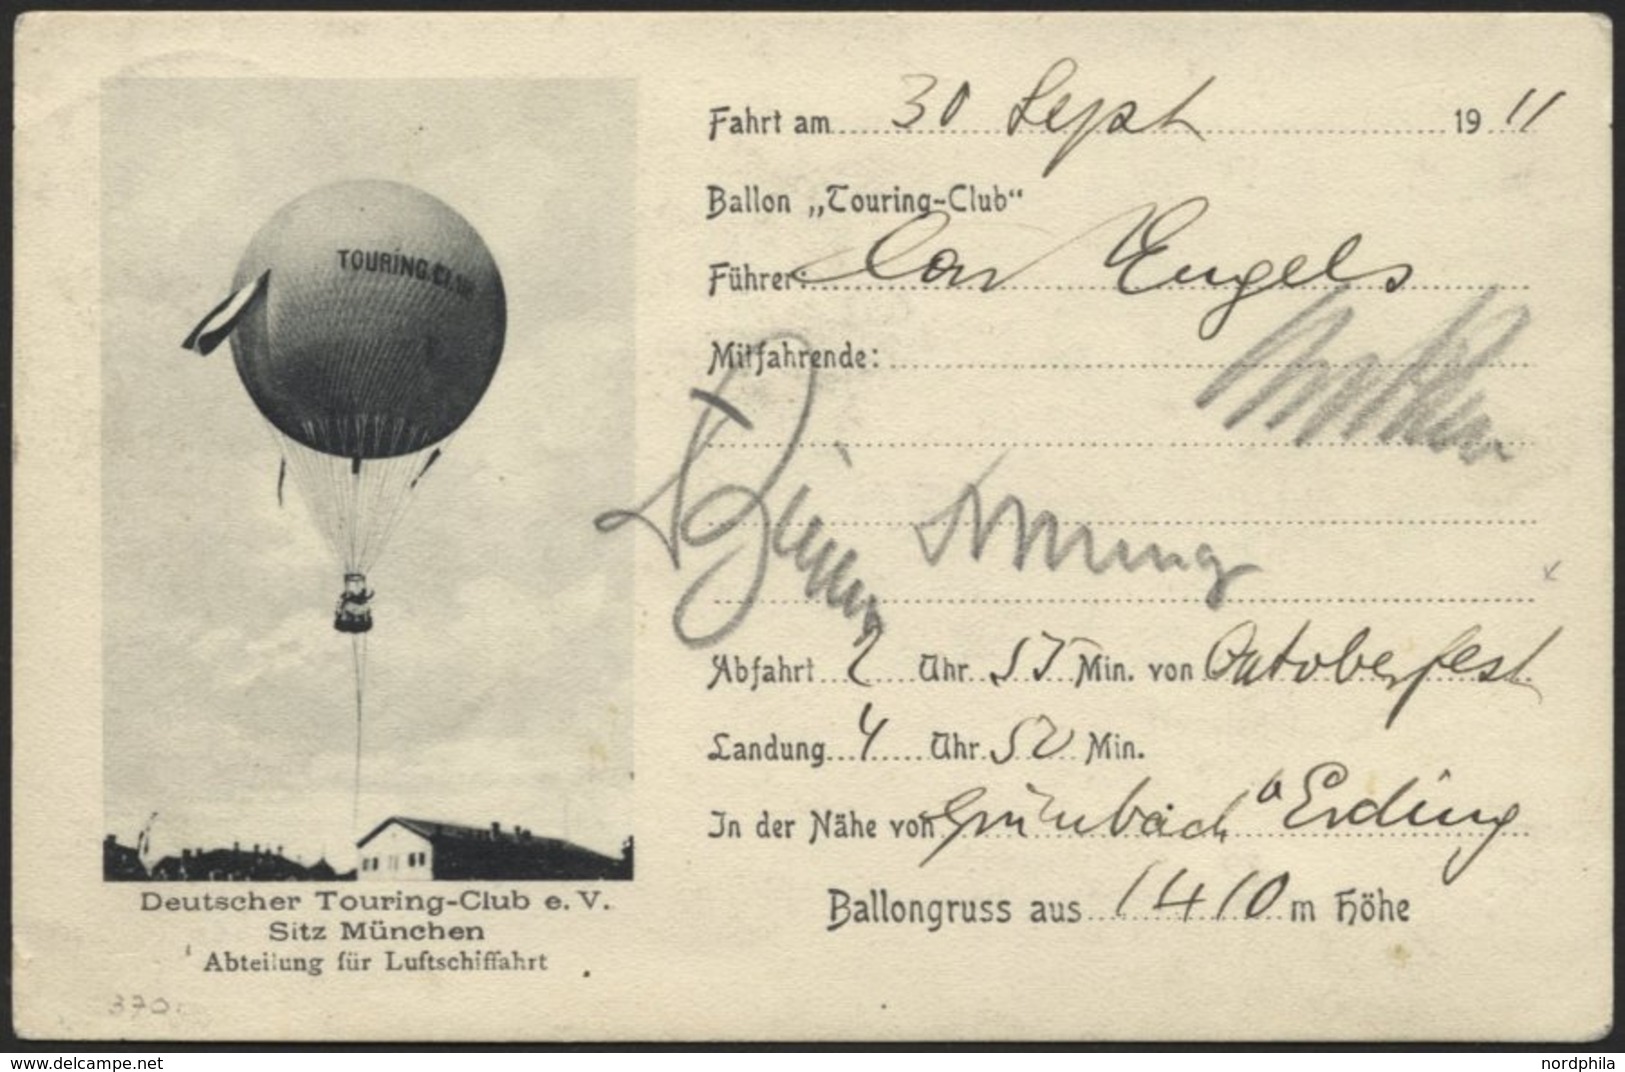 TOURING-CLUB
Deutscher Touring-Club e. V.
Sitz München
Abteilung für Luftschiffahrt
370.
Fahrt am 30 Sept 19 11
Ballon „Touring-Club“
Führer: Engels
Mitfahrende:
Abfahrt 2 Uhr 55 Min. von Oktoberfest
Landung 4 Uhr 50 Min.
In der Nähe von Grünbach b Erding
Ballongruss aus 1410 m Höhe
www.delcampe.net
nordphila